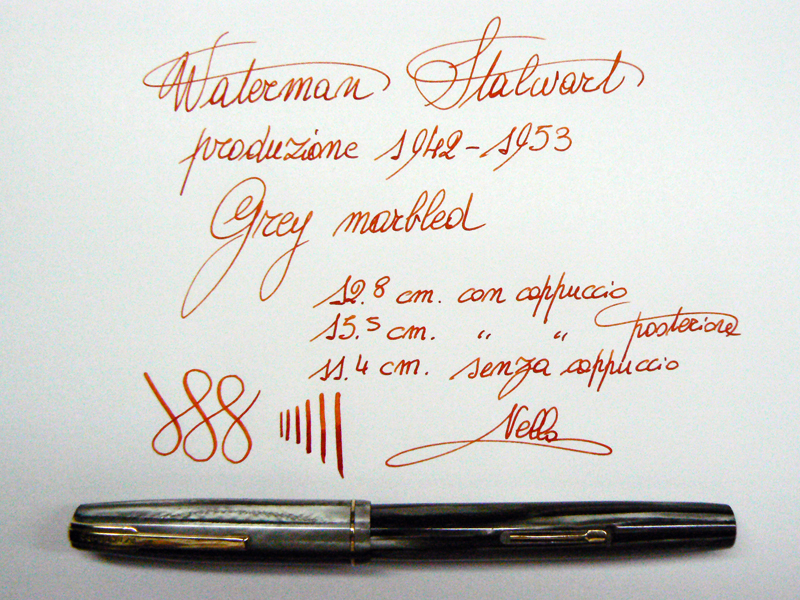 Waterman Stalwart
produzione 1942-1953
Grey marbled
12.8 cm. con cappuccio
15.5 cm. " " posteriore
11.4 cm. senza cappuccio
Nello